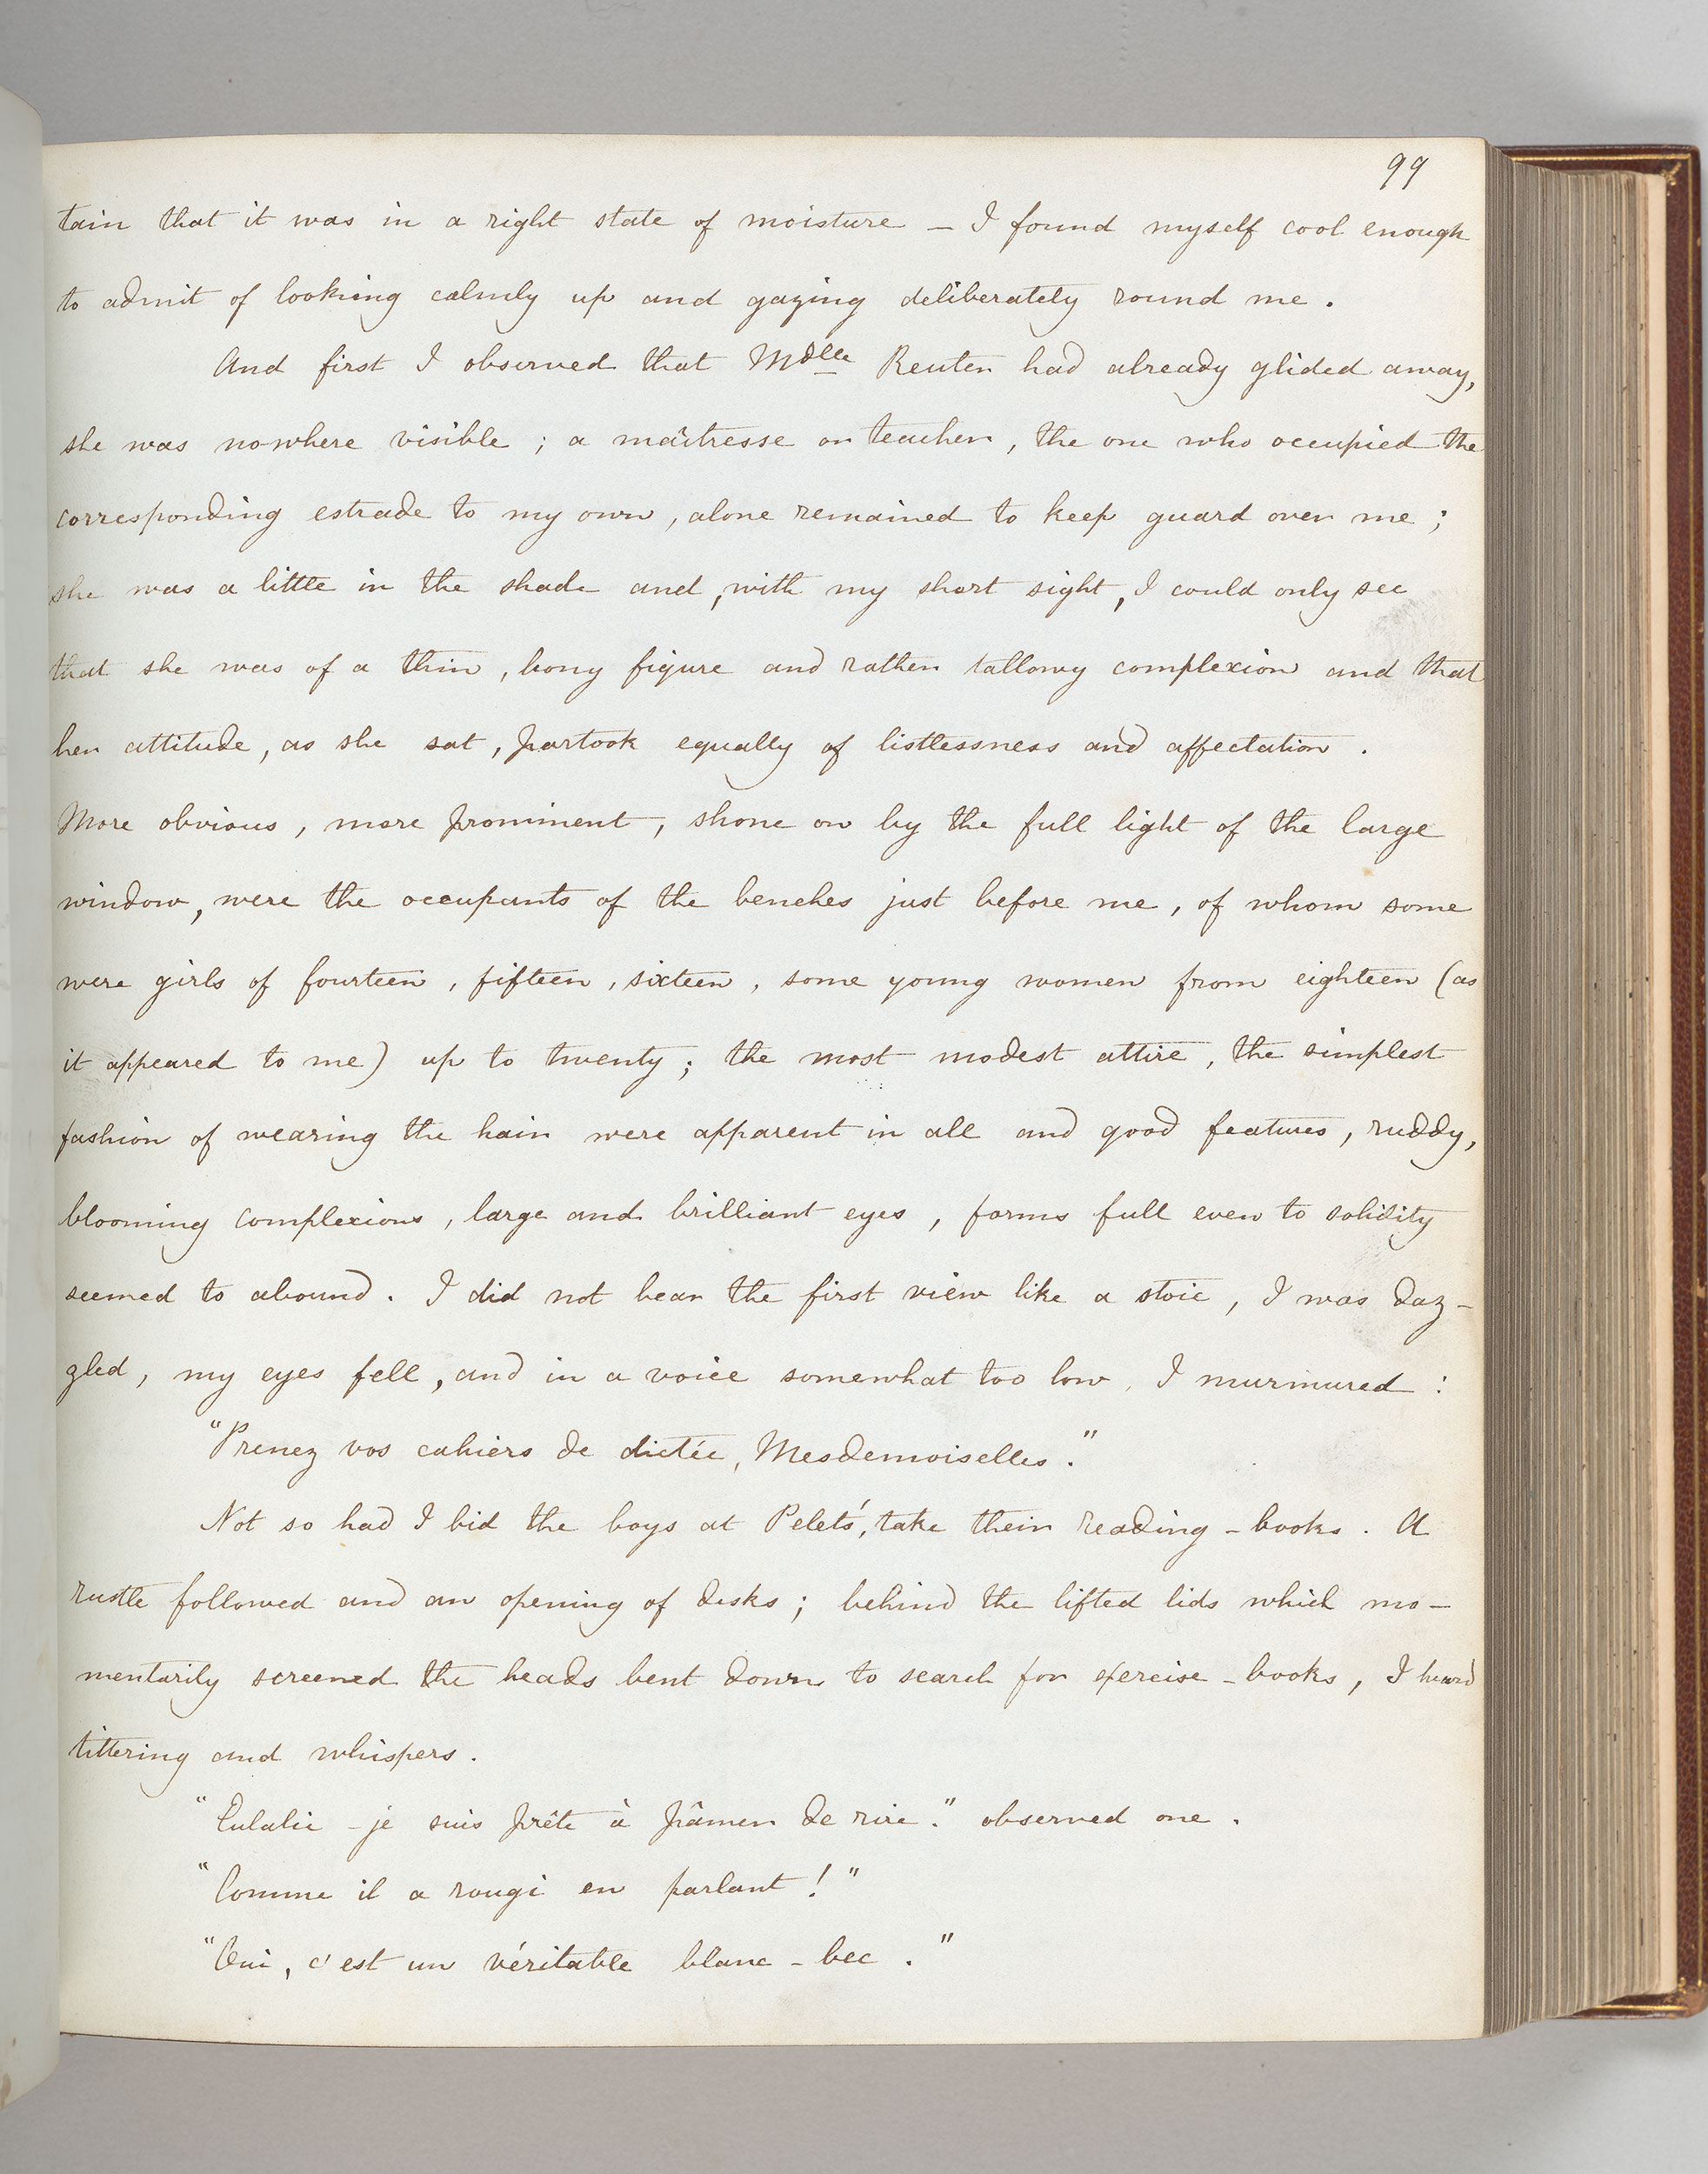 99
tain that it was in a right state of moisture — I found myself cool enough
to admit of looking calmly up and gazing deliberately round me.
And first I observed that Mdlle Reuter had already glided away,
she was nowhere visible; a maîtresse or teacher, the one who occupied the
corresponding estrade to my own, alone remained to keep guard over me;
she was a little in the shade and, with my short sight, I could only see
that she was of a thin, bony figure and rather tallowy complexion and that
her attitude, as she sat, partook equally of listlessness and affectation.
More obvious, more prominent, shone on by the full light of the large
window, were the occupants of the benches just before me, of whom some
were girls of fourteen, fifteen, sixteen, some young women from eighteen (as
it appeared to me) up to twenty; the most modest attire, the simplest
fashion of wearing the hair were apparent in all and good features, ruddy,
blooming complexions, large and brilliant eyes, forms full even to solidity
seemed to abound. I did not bear the first view like a stoic, I was daz-
zled, my eyes fell, and in a voice somewhat too low, I murmured:
"Prenez vos cahiers de dictée, Mesdemoiselles."
Not so had I bid the boys at Pelet's, take their reading-books. A
rustle followed and an opening of desks; behind the lifted lids which mo-
mentarily screened the heads bent down to search for exercise-books, I heard
tittering and whispers.
"Eulalie - je suis prête à pâmer de rire." observed one.
"Comme il a rougi en parlant!"
"Oui, c'est un véritable blanc-bec."